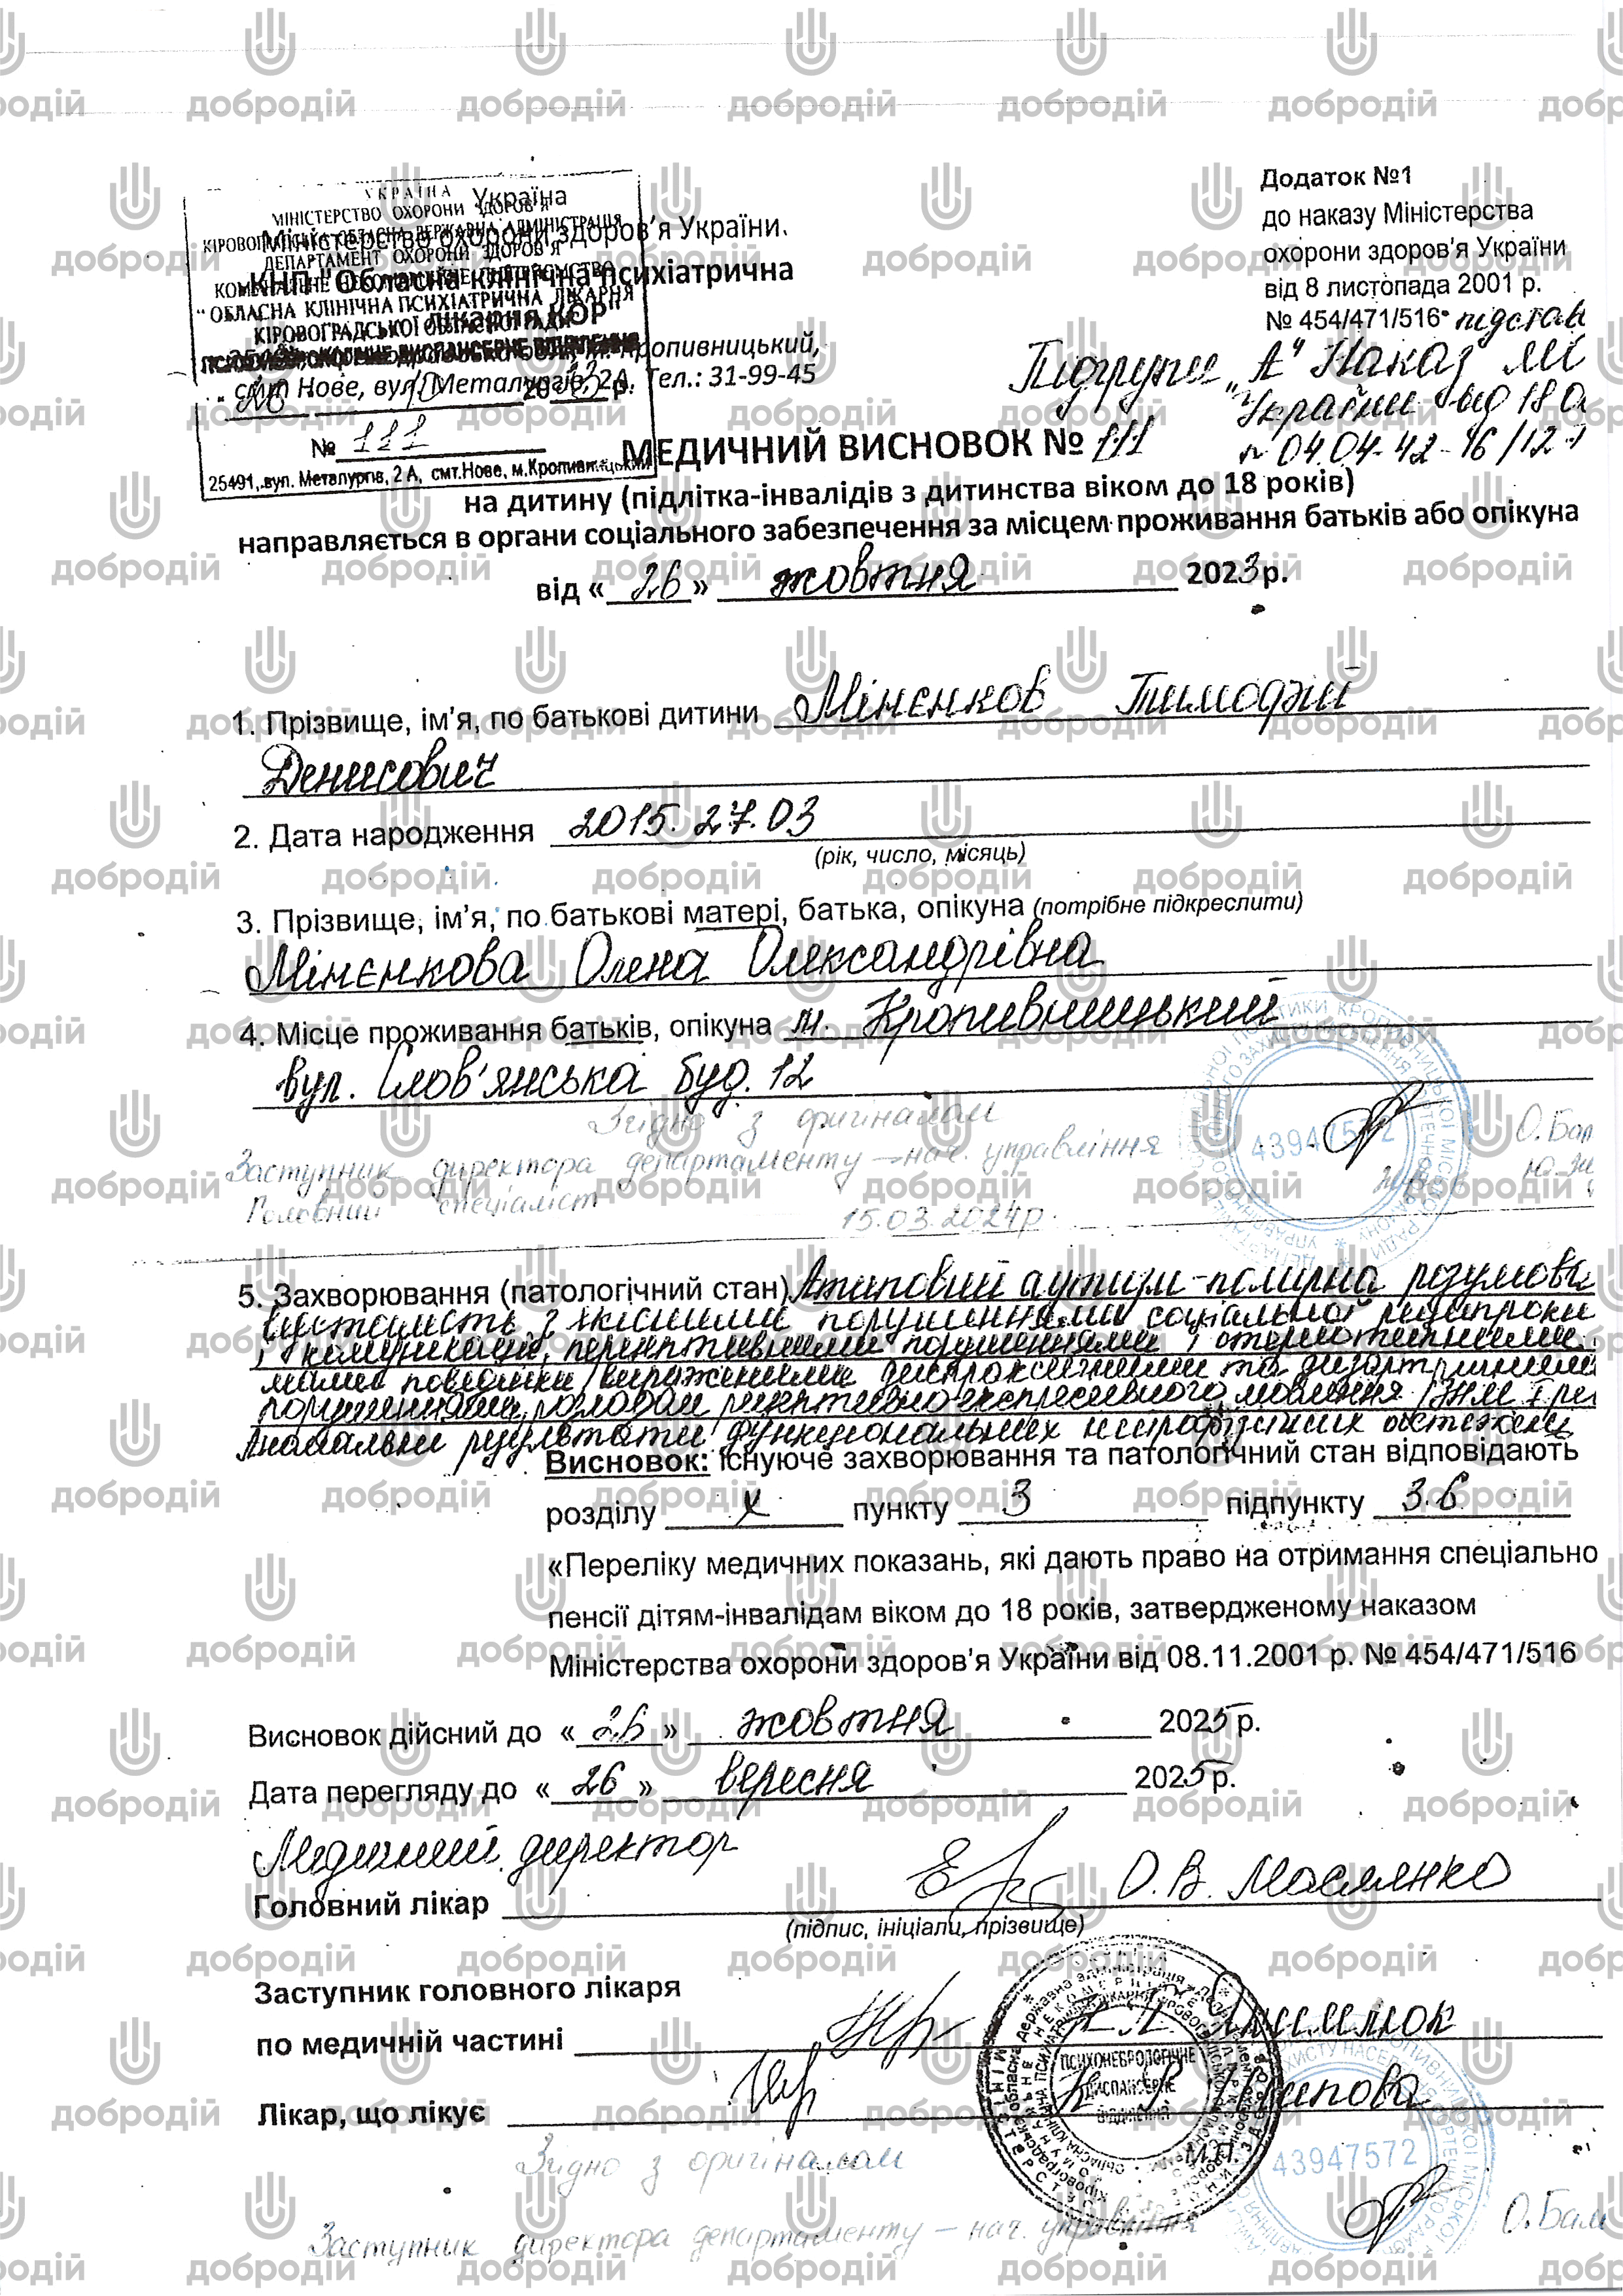 Додаток №1
до наказу Міністерства
охорони здоров'я України
від 8 листопада 2001 р.
№ 454/471/516
Підгрупи „А" Наказ
України від 18
04.04-42-16/12
УКРАЇНА
МІНІСТЕРСТВО ОХОРОНИ ЗДОРОВ'Я
КІРОВОГРАДСЬКА ОБЛАСНА ДЕРЖАВНА АДМІНІСТРАЦІЯ
ДЕПАРТАМЕНТ ОХОРОНИ ЗДОРОВ'Я
"ОБЛАСНА КЛІНІЧНА ПСИХІАТРИЧНА ЛІКАРНЯ
КІРОВОГРАДСЬКОЇ ОБЛАСНОЇ РАДИ"
№ 111
25491, вул. Металургів, 2 А, смт.Нове, м.Кропивницький
Україна
Міністерство охорони здоров'я України.
КНП "Обласна клінічна психіатрична
лікарня КОР
Кропивницький,
смт Нове, вул. Металургів, 2А. Тел.: 31-99-45
МЕДИЧНИЙ ВИСНОВОК № 111
на дитину (підлітка-інвалідів з дитинства віком до 18 років)
направляється в органи соціального забезпечення за місцем проживання батьків або опікуна
від « 26 » жовтня 2023 р.
1. Прізвище, ім'я, по батькові дитини Мінєнков Тимофій
Денисович
2. Дата народження 2015. 27.03
(рік, число, місяць)
3. Прізвище, ім'я, по батькові матері, батька, опікуна (потрібне підкреслити)
Мінєнкова Олена Олександрівна
4. Місце проживання батьків, опікуна м. Кропивницький
вул. Слов'янська буд. 12
Згідно з оригіналом
Заступник директора департаменту – нач. управління
Головний спеціаліст 15.03.2024р.
43947572
5. Захворювання (патологічний стан) Атиповий аутизм - помірна розумова
відсталість з якісними порушеннями соціальної
і комунікації, перцептивними порушеннями і стереотипними
поведінки, вираженими диспраксичними та дизартричними
порушеннями, розладом рецептивно-експресивного мовлення
Аномальні результати функціональних нейрофізичних обстежень
Висновок: існуюче захворювання та патологічний стан відповідають
розділу X пункту 3 підпункту 3.6
«Переліку медичних показань, які дають право на отримання спеціально
пенсії дітям-інвалідам віком до 18 років, затвердженому наказом
Міністерства охорони здоров'я України від 08.11.2001 р. № 454/471/516
Висновок дійсний до « 26 » жовтня 2025 р.
Дата перегляду до « 26 » вересня 2025 р.
Медичний директор
Головний лікар О.В. Маслянко
(підпис, ініціали, прізвище)
Заступник головного лікаря
по медичній частині
Лікар, що лікує
ПСИХОНЕВРОЛОГІЧНЕ
ДИСПАНСЕРНЕ
ВІДДІЛЕННЯ
М.П.
43947572
Згідно з оригіналом
Заступник директора департаменту – нач. управління
добродій